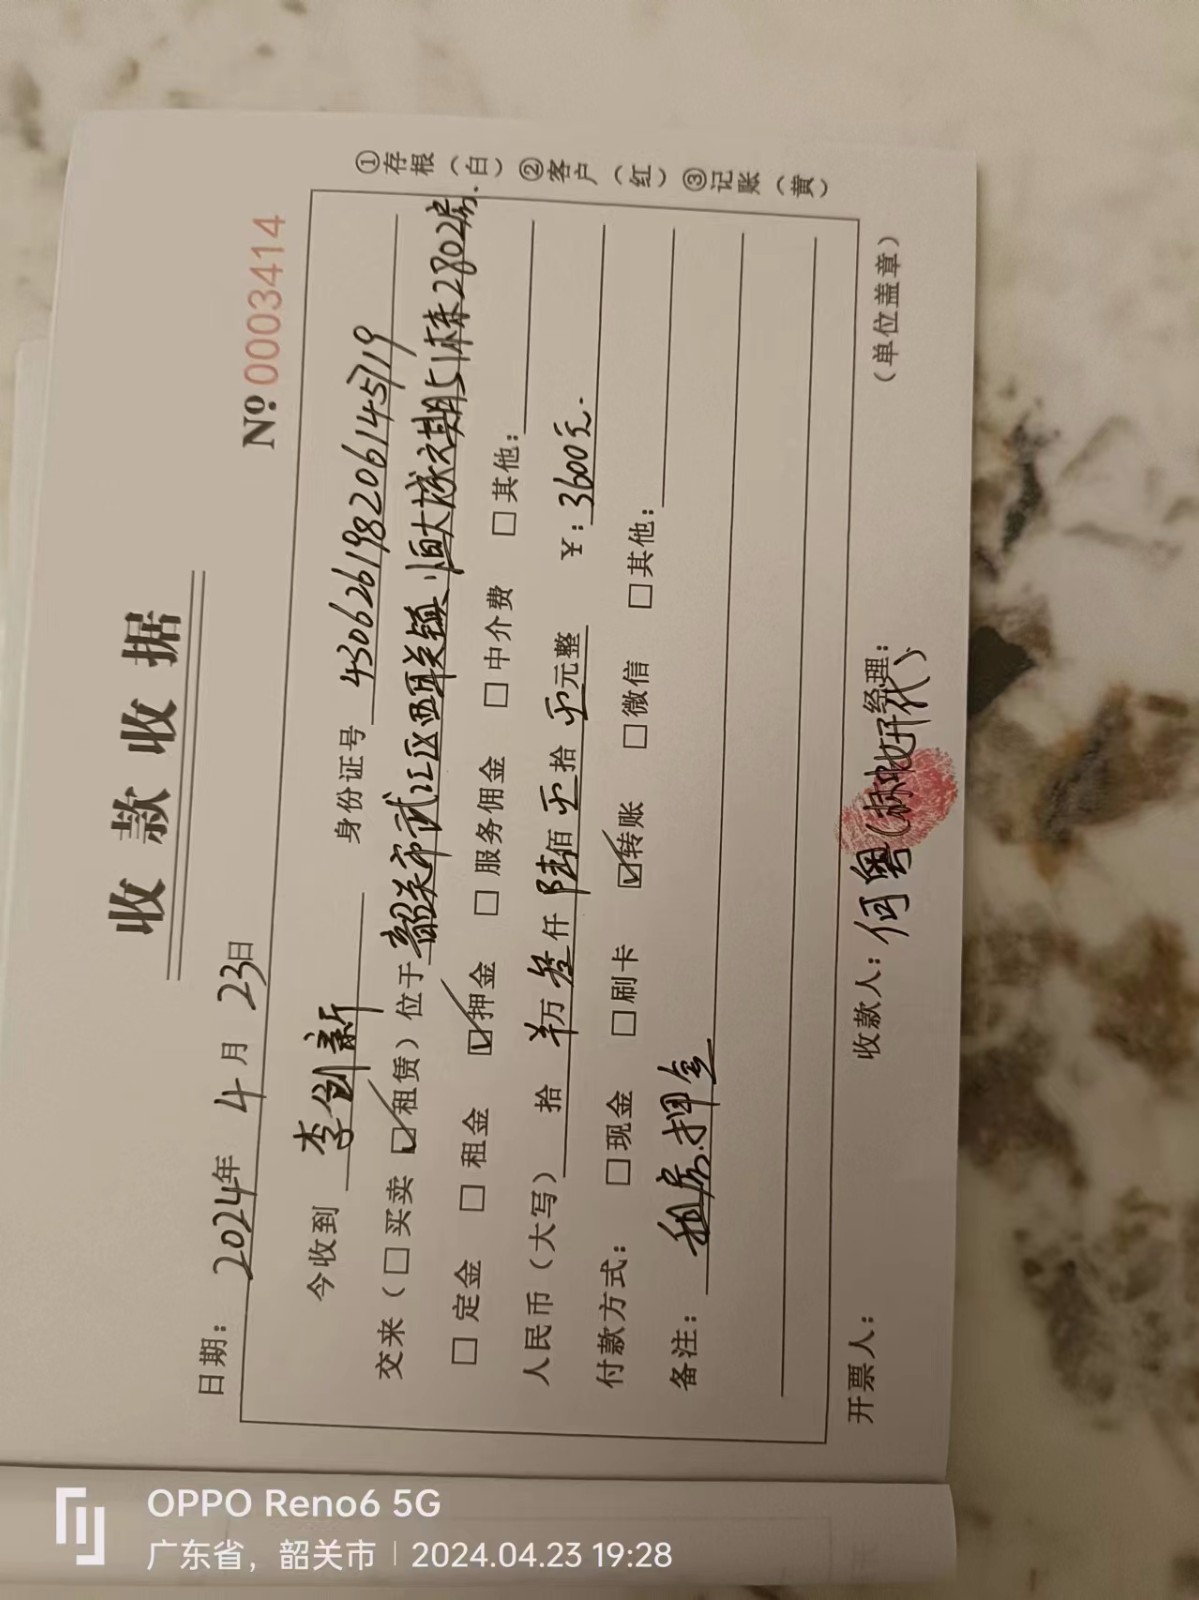 收款收据
№ 0003414
日期: 2024年 4 月 23日
今收到 李创新 身份证号 430626198206145719
交来（□买卖 ☑租赁）位于韶关市武江区西联镇恒大城六期51栋2802房.
□定金 □租金 ☑押金 □服务佣金 □中介费 □其他:
人民币（大写） 拾 羊万 叁仟 陆佰 零拾 零元整 ¥: 3600元.
付款方式: □现金 □刷卡 ☑转账 □微信 □其他:
备注: 租房押金
开票人: 收款人: 何粤( 代) 经理: （单位盖章）
①存根（白）②客户（红）③记账（黄）
OPPO Reno6 5G
广东省，韶关市 | 2024.04.23 19:28